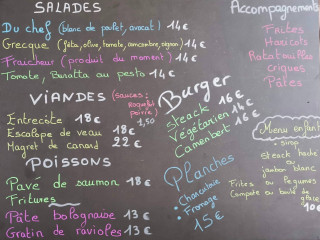 SALADES
Du chef (blanc de poulet, avocat) 14€
Grecque (feta, olive, tomate, concombre, oignon) 14€
Fraicheur (produit du moment) 14€
Tomate, Buratta au pesto 14€
VIANDES (sauces:
Roquefort
poivre)
1,50
Entrecôte 18€
Escalope de veau 18€
Magret de canard 22€
POISSONS
Pavé de saumon 18€
Fritures
Pâte bolognaise 13€
Gratin de ravioles 13€
Burger
steack 16€
Végétarien 14€
Camembert 16€
Planches
• Charcuterie
• Fromage
15€
Accompagnements
Frites
Haricots
Ratatouilles
criques
Pâtes
Menu enfant
• sirop
steack haché
ou
jambon blanc
Frites ou légumes
Compote ou boule de
glace
10€